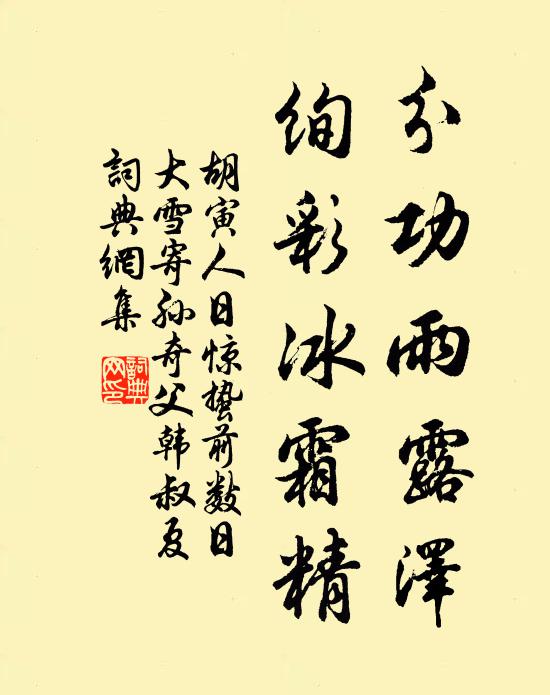 分功雨露澤
绚彩冰霜精
胡寅人日惊蛰前数日
大雪寄孙奇父韩叔夏
詞典網集
詞典
网印